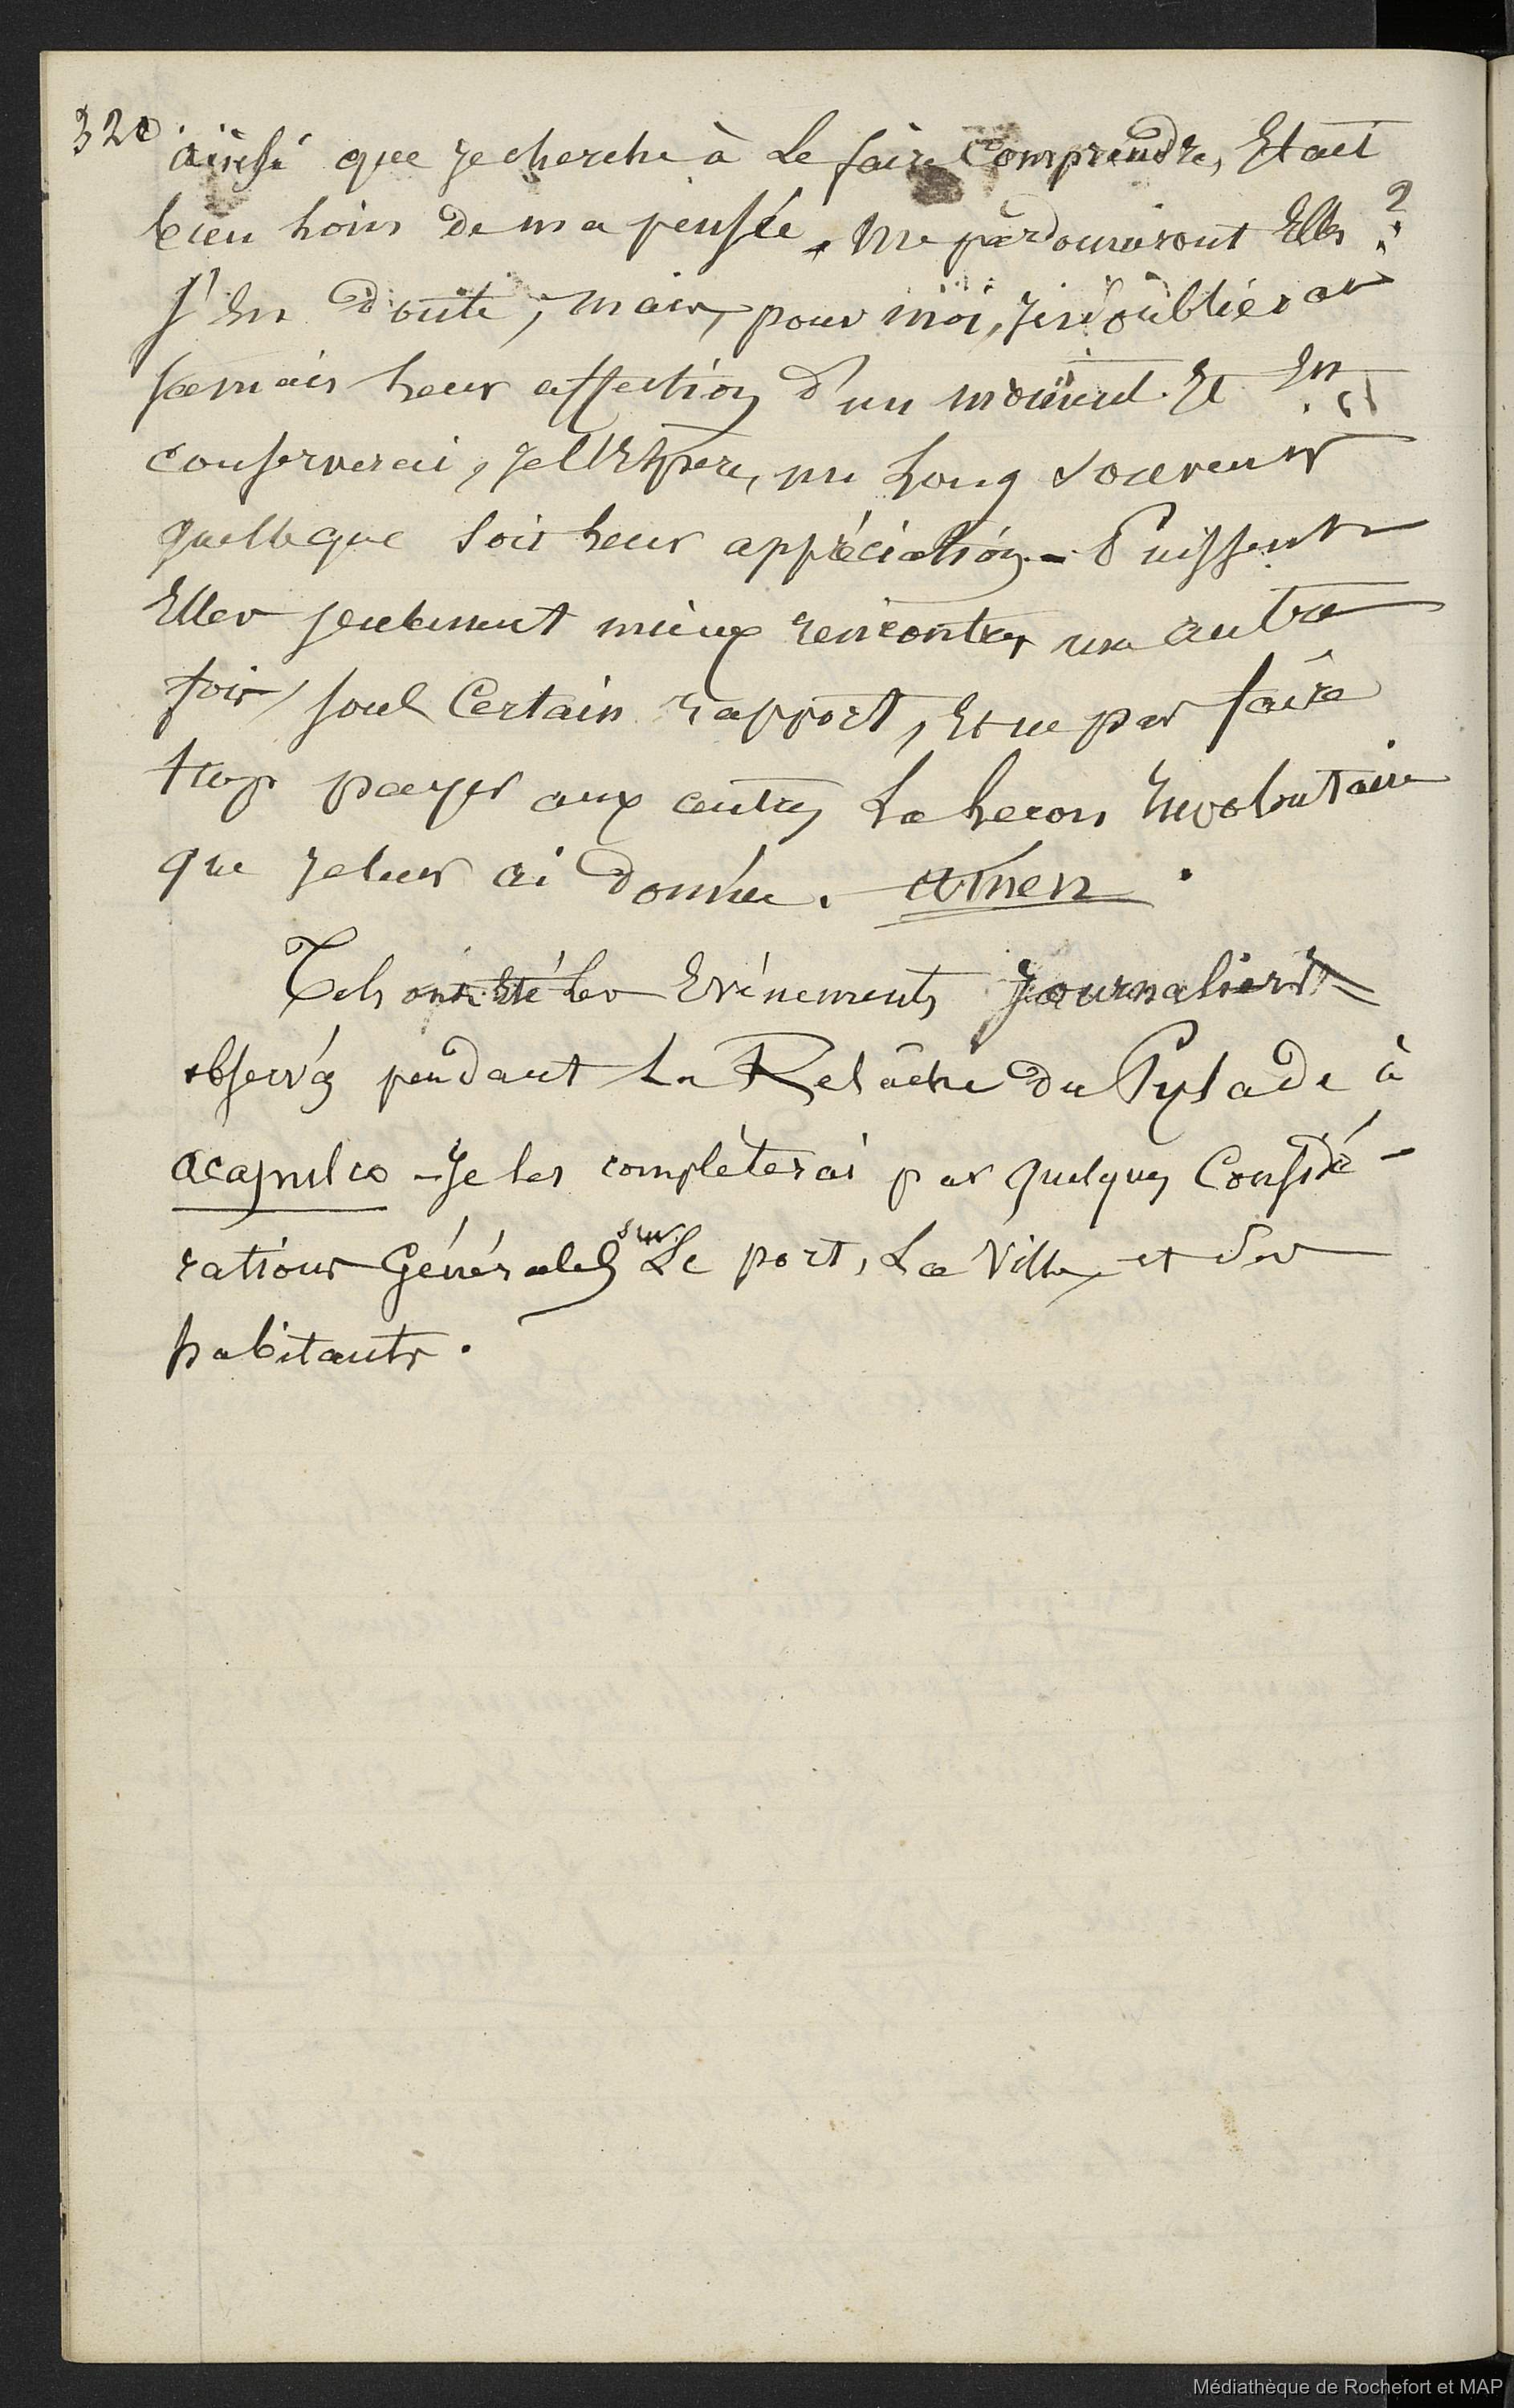 320
ainsi que je cherche à Le faire Comprendre, Etait
bien Loin de ma pensée. me pardonneront Elles ?
J'En doute, mais, pour moi, je n'oublierai
jamais Leur affection d'un moment. Et En
conserverai, je l'Espère, un Long souvenir
quelleque soit Leur appréciation - Puissent
Elles seulement mieux rencontrer une autre
fois, sous Certain rapport, Et ne pas faire
trop payer aux autres La Leçon Involontaire
que je leur ai donnée. amen.
Tels ont Eté Les Evénements Journaliers
observés pendant La Relâche du Pylade à
acapulco - Je les complèterai par quelques Considé-
rations Générales sur Le port, La Ville et Ses
habitants.
Médiathèque de Rochefort et MAP